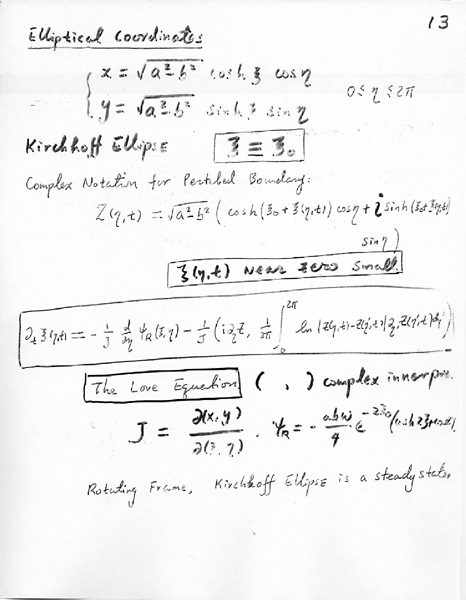 13
Elliptical Coordinates
x = √a²-b² cosh ξ cos η
y = √a²-b² sinh ξ sin η
0 ≤ η ≤ 2π
Kirchhoff Ellipse ξ ≡ ξ₀
Complex Notation for Pertibed Boundary:
Z(η,t) = √a²-b² ( cosh(ξ₀ + ξ(η,t)) cos η + i sinh(ξ₀+ξ(η,t))
sin η )
ξ(η,t) Near Zero Small.
∂ₜ ξ(η,t) = - 1/J d/dη Ψ_R(ξ,η) - 1/J (i∂_η Z, 1/2π ∫₀^2π ln|Z(η,t)-Z(η',t)| ∂_η' Z(η',t) dη')
The Love Equation ( , ) complex inner pro.
J = ∂(x,y)/∂(ξ,η) . Ψ_R = - abω/4 e^-2ξ₀
Rotating Frame, Kirchhoff Ellipse is a steady state.